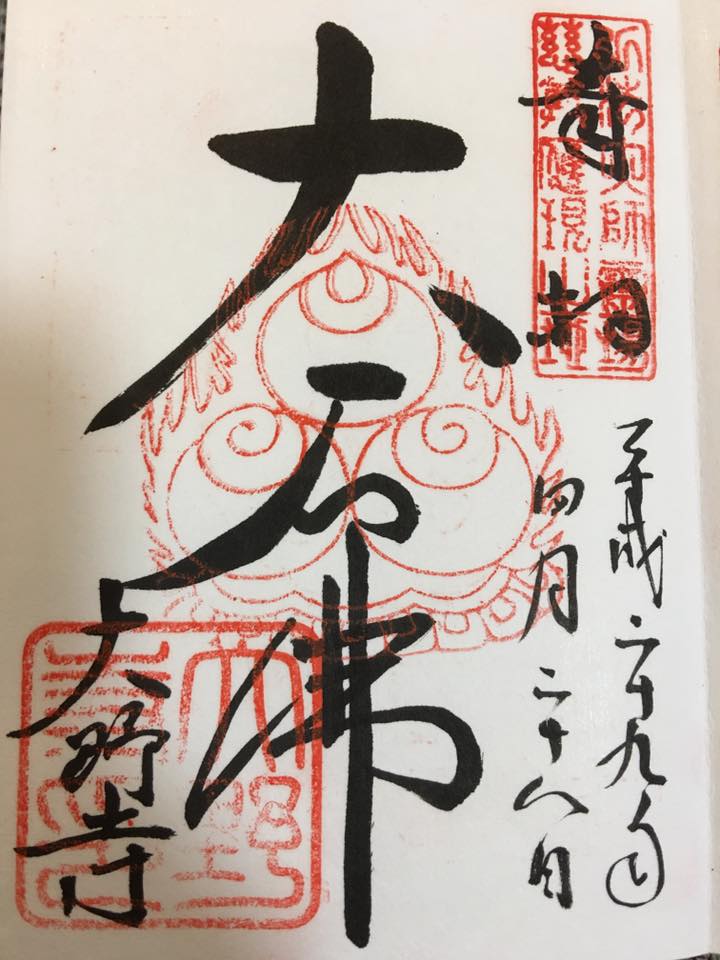 奉拝
平成二十九年
四月二十八日
大石佛
大野寺
大野